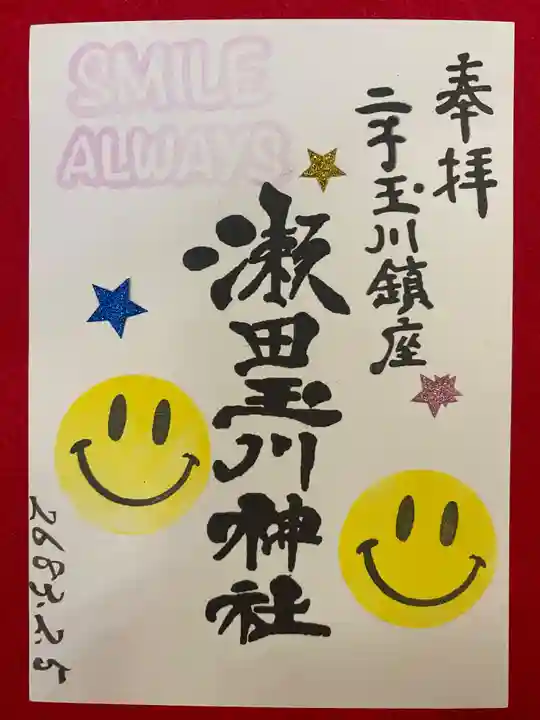 SMILE
ALWAYS
奉拝
二子玉川鎮座
瀬田玉川神社
2683.2.5